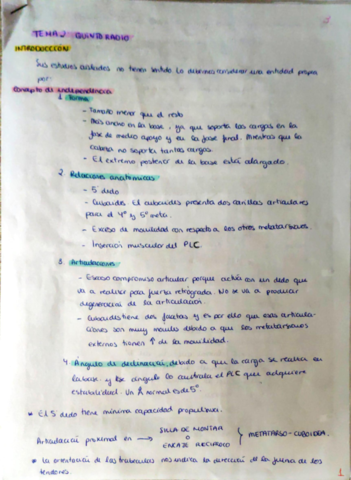 TEMA 2 QUINTO RADIO
INTRODUCCIÓN
Los estudios aislados no tienen sentido lo debemos considerar una entidad propia
por:
Concepto de independencia
1. Forma
- Tamaño menor que el resto
- Más ancho en la base, ya que soporta las cargas en la
fase de medio apoyo y en la fase final. Mientras que la
cabeza no soporta tantas cargas.
- El extremo posterior de la base está alargado.
2. Relaciones anatómicas
- 5 dedo
- Cuboides. El cuboides presenta dos carillas articulares
para el 4º y 5º meta.
- Exceso de movilidad con respecto a los otros metatarsianos.
- Inserción muscular del PLC
3. Articulaciones
- Escaso compromiso articular porque actúa en un dedo que
va a realizar poca fuerza retrograda. No se va a producir
degeneración de la articulación.
- Cuboides tiene dos facetas y es por ello que esas articula-
ciones son muy movils debido a que los metatarsianos
externos tienen ↑ de la movilidad.
4. Ángulo de declinación, debido a que la carga se realiza en
la base y ese ángulo lo controla el PLC que adquiere
estabilidad. Un normal es de 5º.
* El 5 dedo tiene mínima capacidad propulsiva.
Articulación proximal en → SILLA DE MONTAR
O
ENCAJE RECIPROCO
} METATARSO-CUBOIDEA.
* La orientación de las trabeculas nos indica la dirección de la fuerza de los
tendones.
1